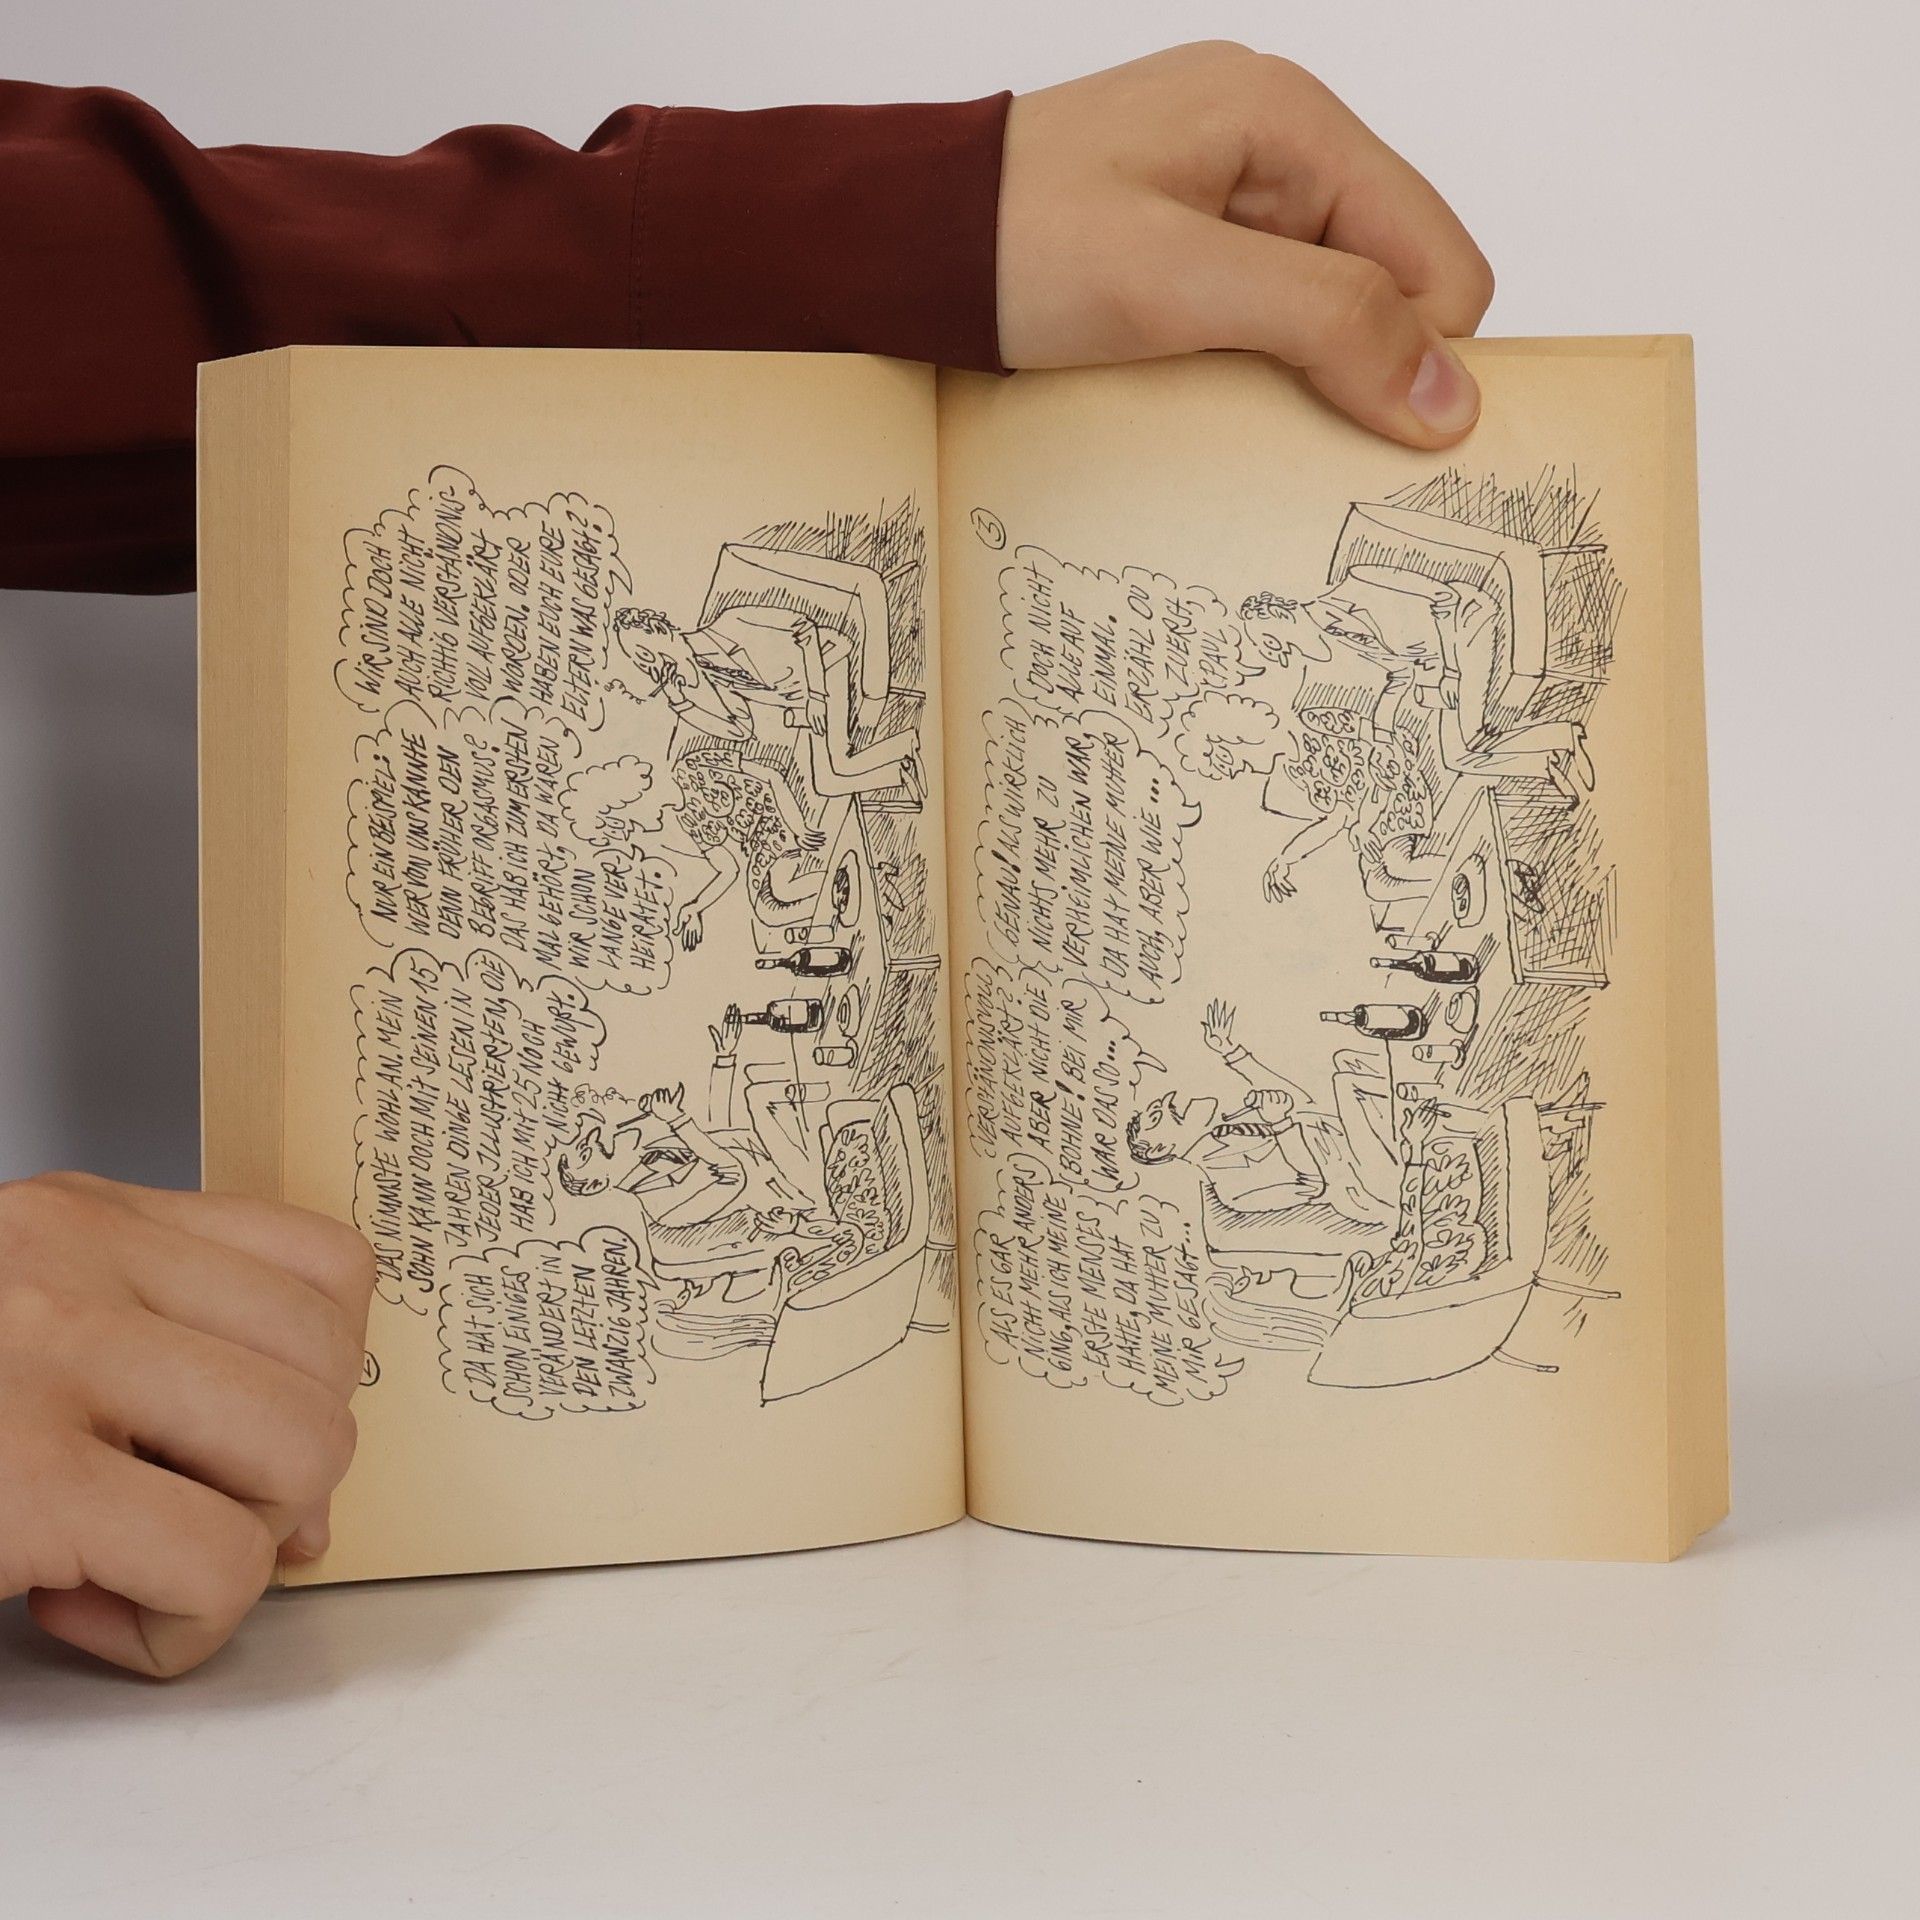 2
DA HAT SICH
SCHON EINIGES
VERÄNDERT IN
DEN LETZTEN
ZWANZIG JAHREN.
DAS NIMMSTE WOHL AN. MEIN
SOHN KANN DOCH MIT SEINEN 15
JAHREN DINGE LESEN IN
JEDER ILLUSTRIERTEN, DIE
HAB ICH MIT 25 NOCH
NICHT GEWUßT.
NUR EIN BEISPIEL:
WER VON UNS KANNTE
DENN FRÜHER DEN
BEGRIFF ORGASMUS?
DAS HAB ICH ZUM ERSTEN
MAL GEHÖRT, DA WAREN
WIR SCHON
LANGE VER-
HEIRATET.
WIR SIND DOCH
AUCH ALLE NICHT
RICHTIG VERSTÄNDNIS-
VOLL AUFGEKLÄRT
WORDEN. ODER
HABEN EUCH EURE
ELTERN WAS GESAGT?
ALS ES GAR
NICHT MEHR ANDERS
GING, ALS ICH MEINE
ERSTE MENSES
HATTE, DA HAT
MEINE MUTTER ZU
MIR GESAGT...
VERSTÄNDNISVOLL
AUFGEKLÄRT?
ABER NICHT DIE
BOHNE! BEI MIR
WAR DAS SO...
GENAU! ALS WIRKLICH
NICHTS MEHR ZU
VERHEIMLICHEN WAR,
DA HAT MEINE MUTTER
AUCH, ABER WIE...
DOCH NICHT
ALLE AUF
EINMAL.
ERZÄHL DU
ZUERST,
PAUL
3